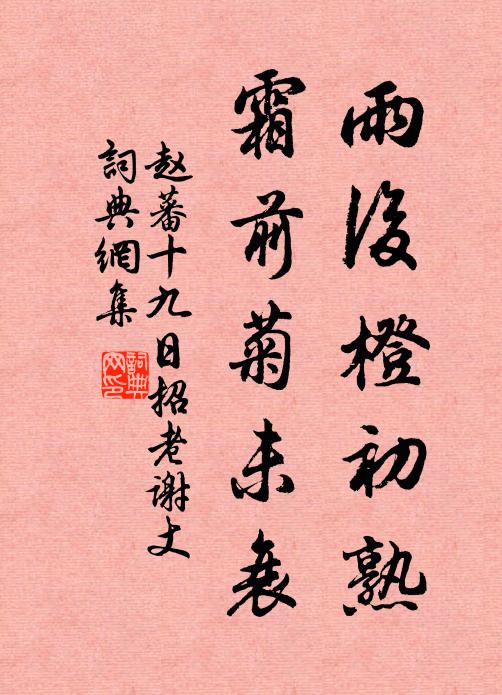 雨後橙初熟
霜前菊未衰
赵蕃十九日招老谢丈
詞典網集
詞典网印